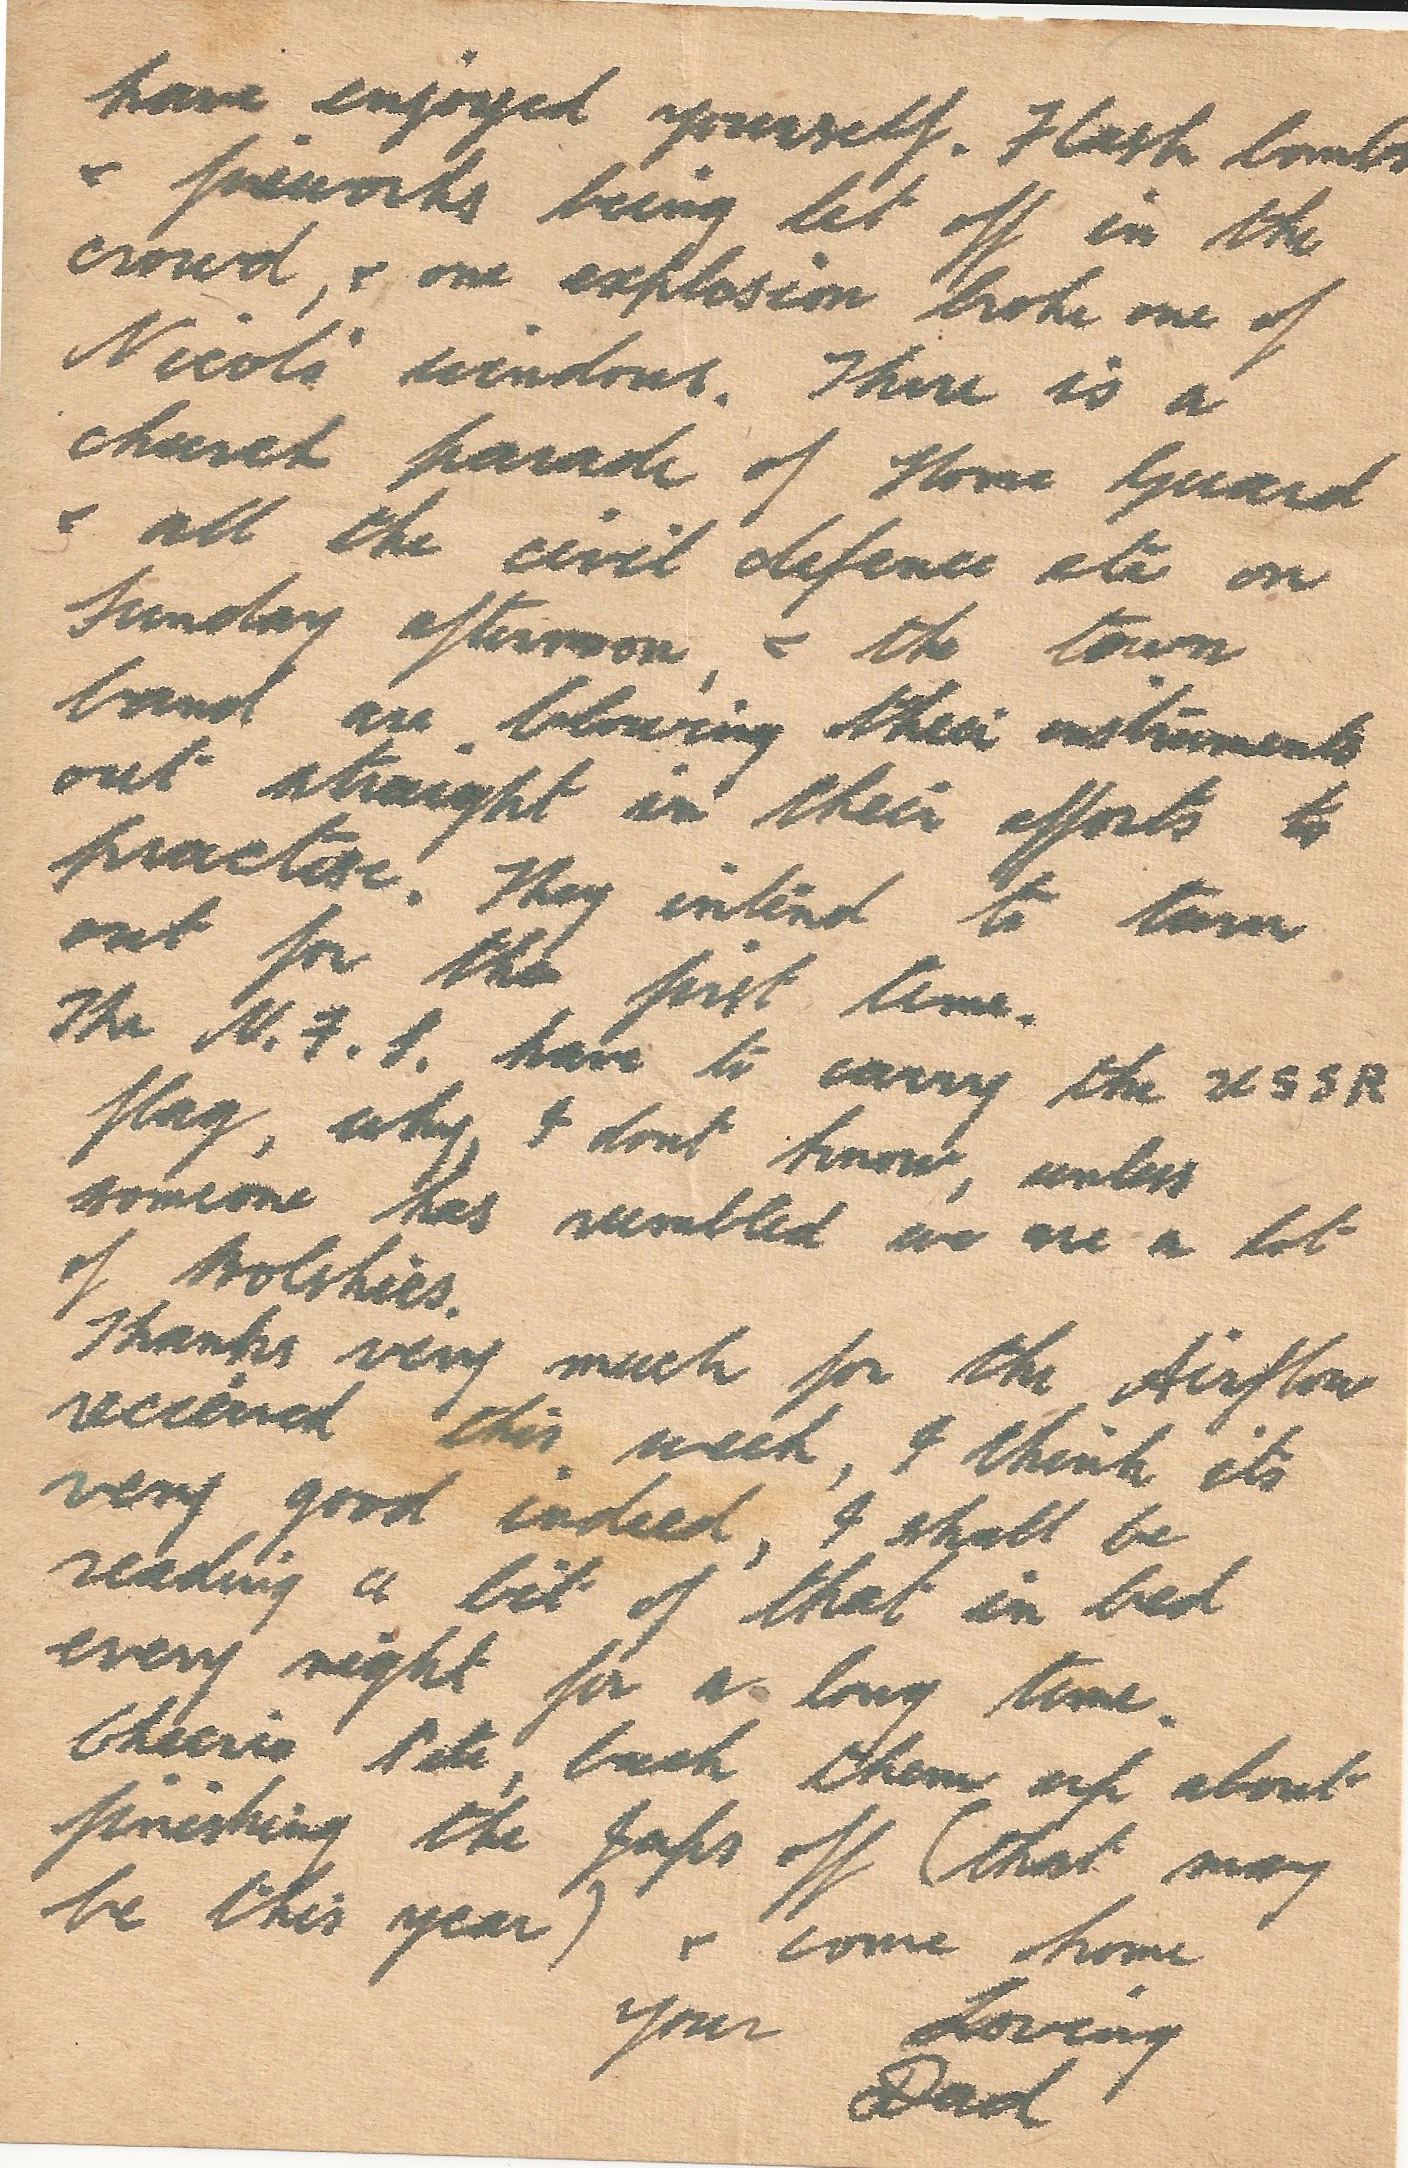 have enjoyed yourself. Flash bombs
& fireworks being let off in the
crowd, & one explosion broke one of
Nicols windows. There is a
church parade of Home Guard
& all the civil defence etc on
Sunday afternoon, & the town
band are blowing their instruments
out straight in their efforts to
practise. They intend to turn
out for the first time.
The N.F.S. have to carry the USSR
flag, why, I dont know, unless
someone has rumbled we are a lot
of Bolshies.
Thanks very much for the Airflow
received this week, I think its
very good indeed, I shall be
reading a bit of that in bed
every night for a long time.
Cheerio Pete, buck them up about
finishing the Japs off (that may
be this year) & come home
your Loving
Dad